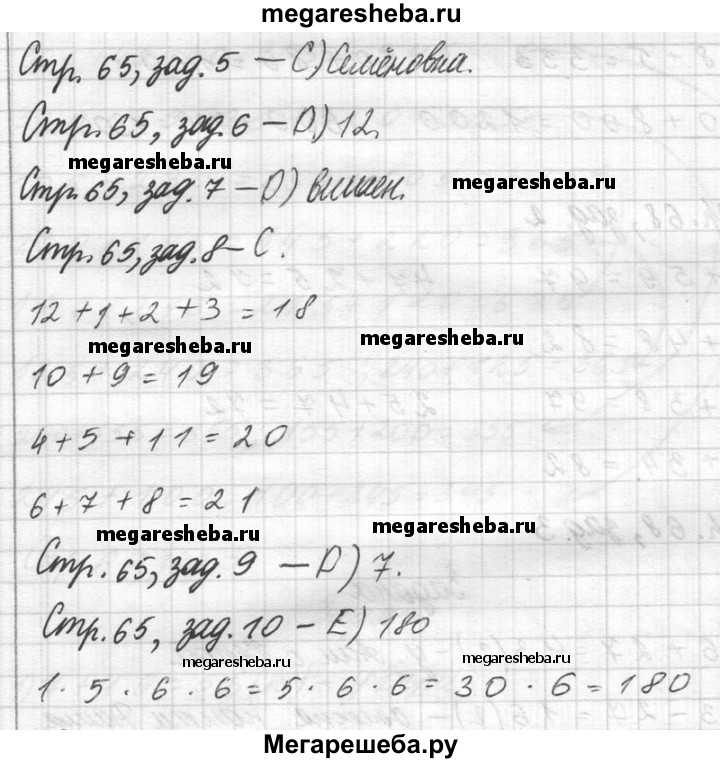 megaresheba.ru
Стр. 65, зад. 5 — С) Семёновна.
Стр. 65, зад. 6 — D) 12.
megaresheba.ru
Стр. 65, зад. 7 — D) вишен.
megaresheba.ru
Стр. 65, зад. 8 — С.
12 + 1 + 2 + 3 = 18
megaresheba.ru
megaresheba.ru
10 + 9 = 19
4 + 5 + 11 = 20
6 + 7 + 8 = 21
megaresheba.ru
megaresheba.ru
Стр. 65, зад. 9 — D) 7.
Стр. 65, зад. 10 — E) 180
megaresheba.ru
megaresheba.ru
1 · 5 · 6 · 6 = 5 · 6 · 6 = 30 · 6 = 180
Мегарешеба.ру